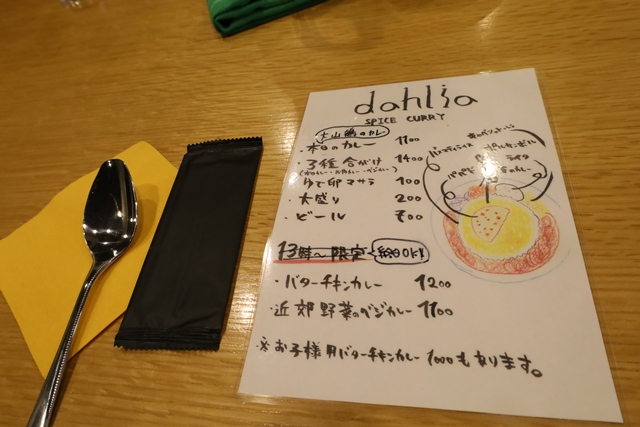 dahlia
SPICE CURRY
大山鶏のカレー
・本日のカレー 1100
・3種合がけ 1400
・ゆで卵マサラ 100
・大盛り 200
・ビール
13時〜限定 終日OK!!
・バターチキンカレー 1200
・近郊野菜のベジカレー 1100
※お子様用バターチキンカレー1000もあります。
バスマティライス
ライタ